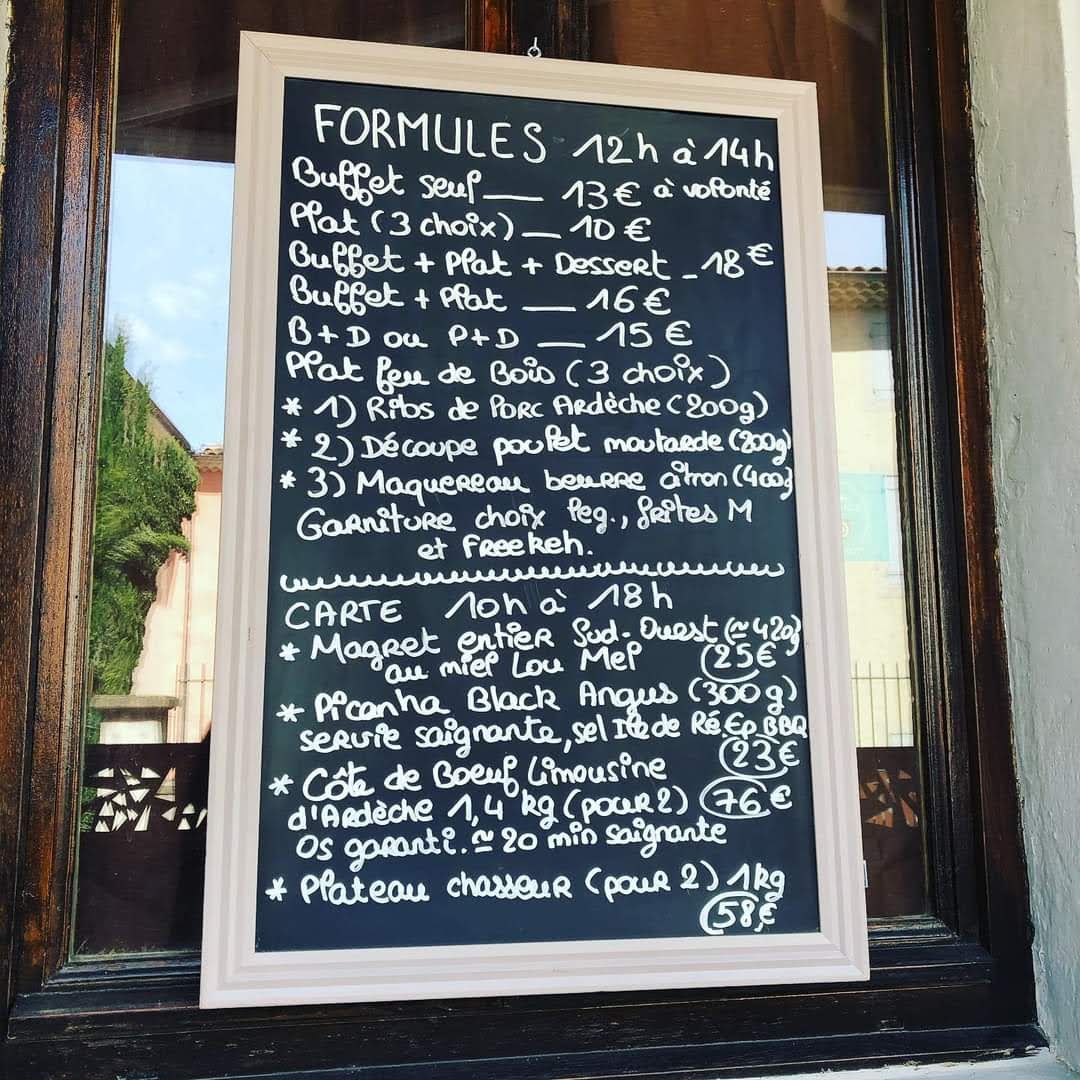 FORMULES 12h à 14h
Buffet seul __ 13€ à volonté
Plat (3 choix) __ 10€
Buffet + Plat + Dessert _ 18€
Buffet + Plat __ 16€
B+D ou P+D __ 15€
Plat feu de Bois (3 choix)
* 1) Ribs de Porc Ardèche (200g)
* 2) Découpe poulet moutarde (200g)
* 3) Maquereau beurre citron (400g)
Garniture choix leg., frites M
et Freekeh.
CARTE 10h à 18h
* Magret entier Sud-Ouest (≃420g)
au miel Lou Mel 25€
* Picanha Black Angus (300g)
servie saignante, sel Ile de Ré. Ep. BBQ
23€
* Côte de Boeuf Limousine
d'Ardèche 1,4 kg (pour 2) 76€
Os garanti. ≃ 20 min saignante
* Plateau chasseur (pour 2) 1kg
58€